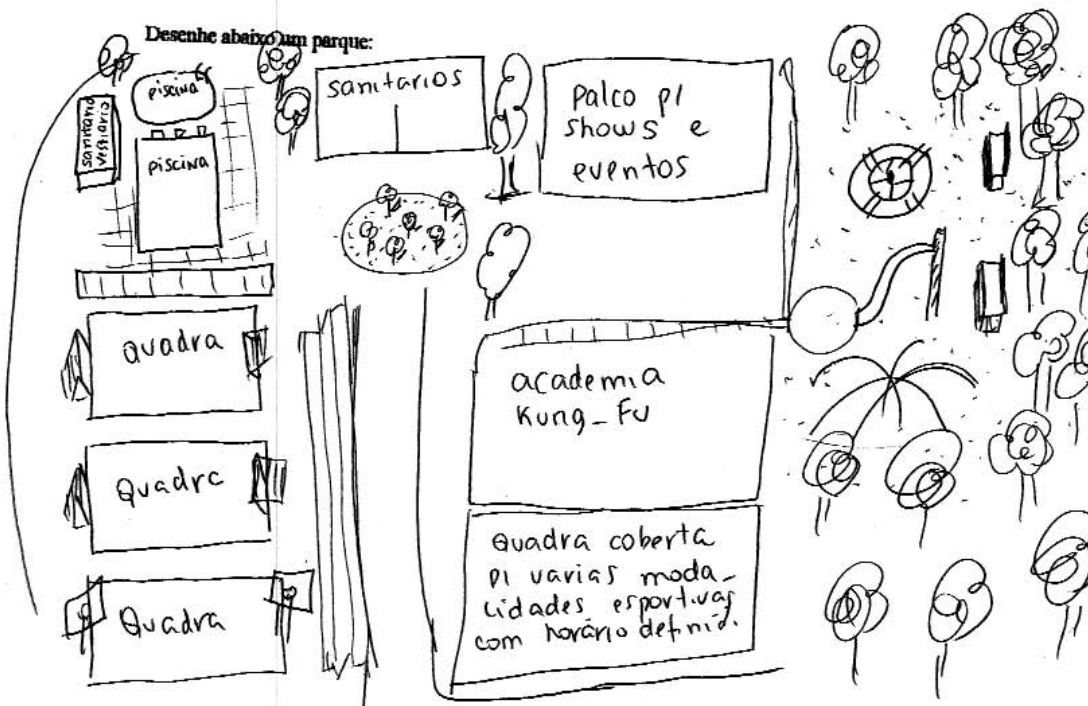 Desenhe abaixo um parque:
piscina
sanitario
vestiario
piscina
sanitarios
Palco p/
shows e
eventos
quadra
Quadra
Quadra
academia
Kung-Fu
Quadra coberta
p/ varias moda-
lidades esportivas
com horário definid.